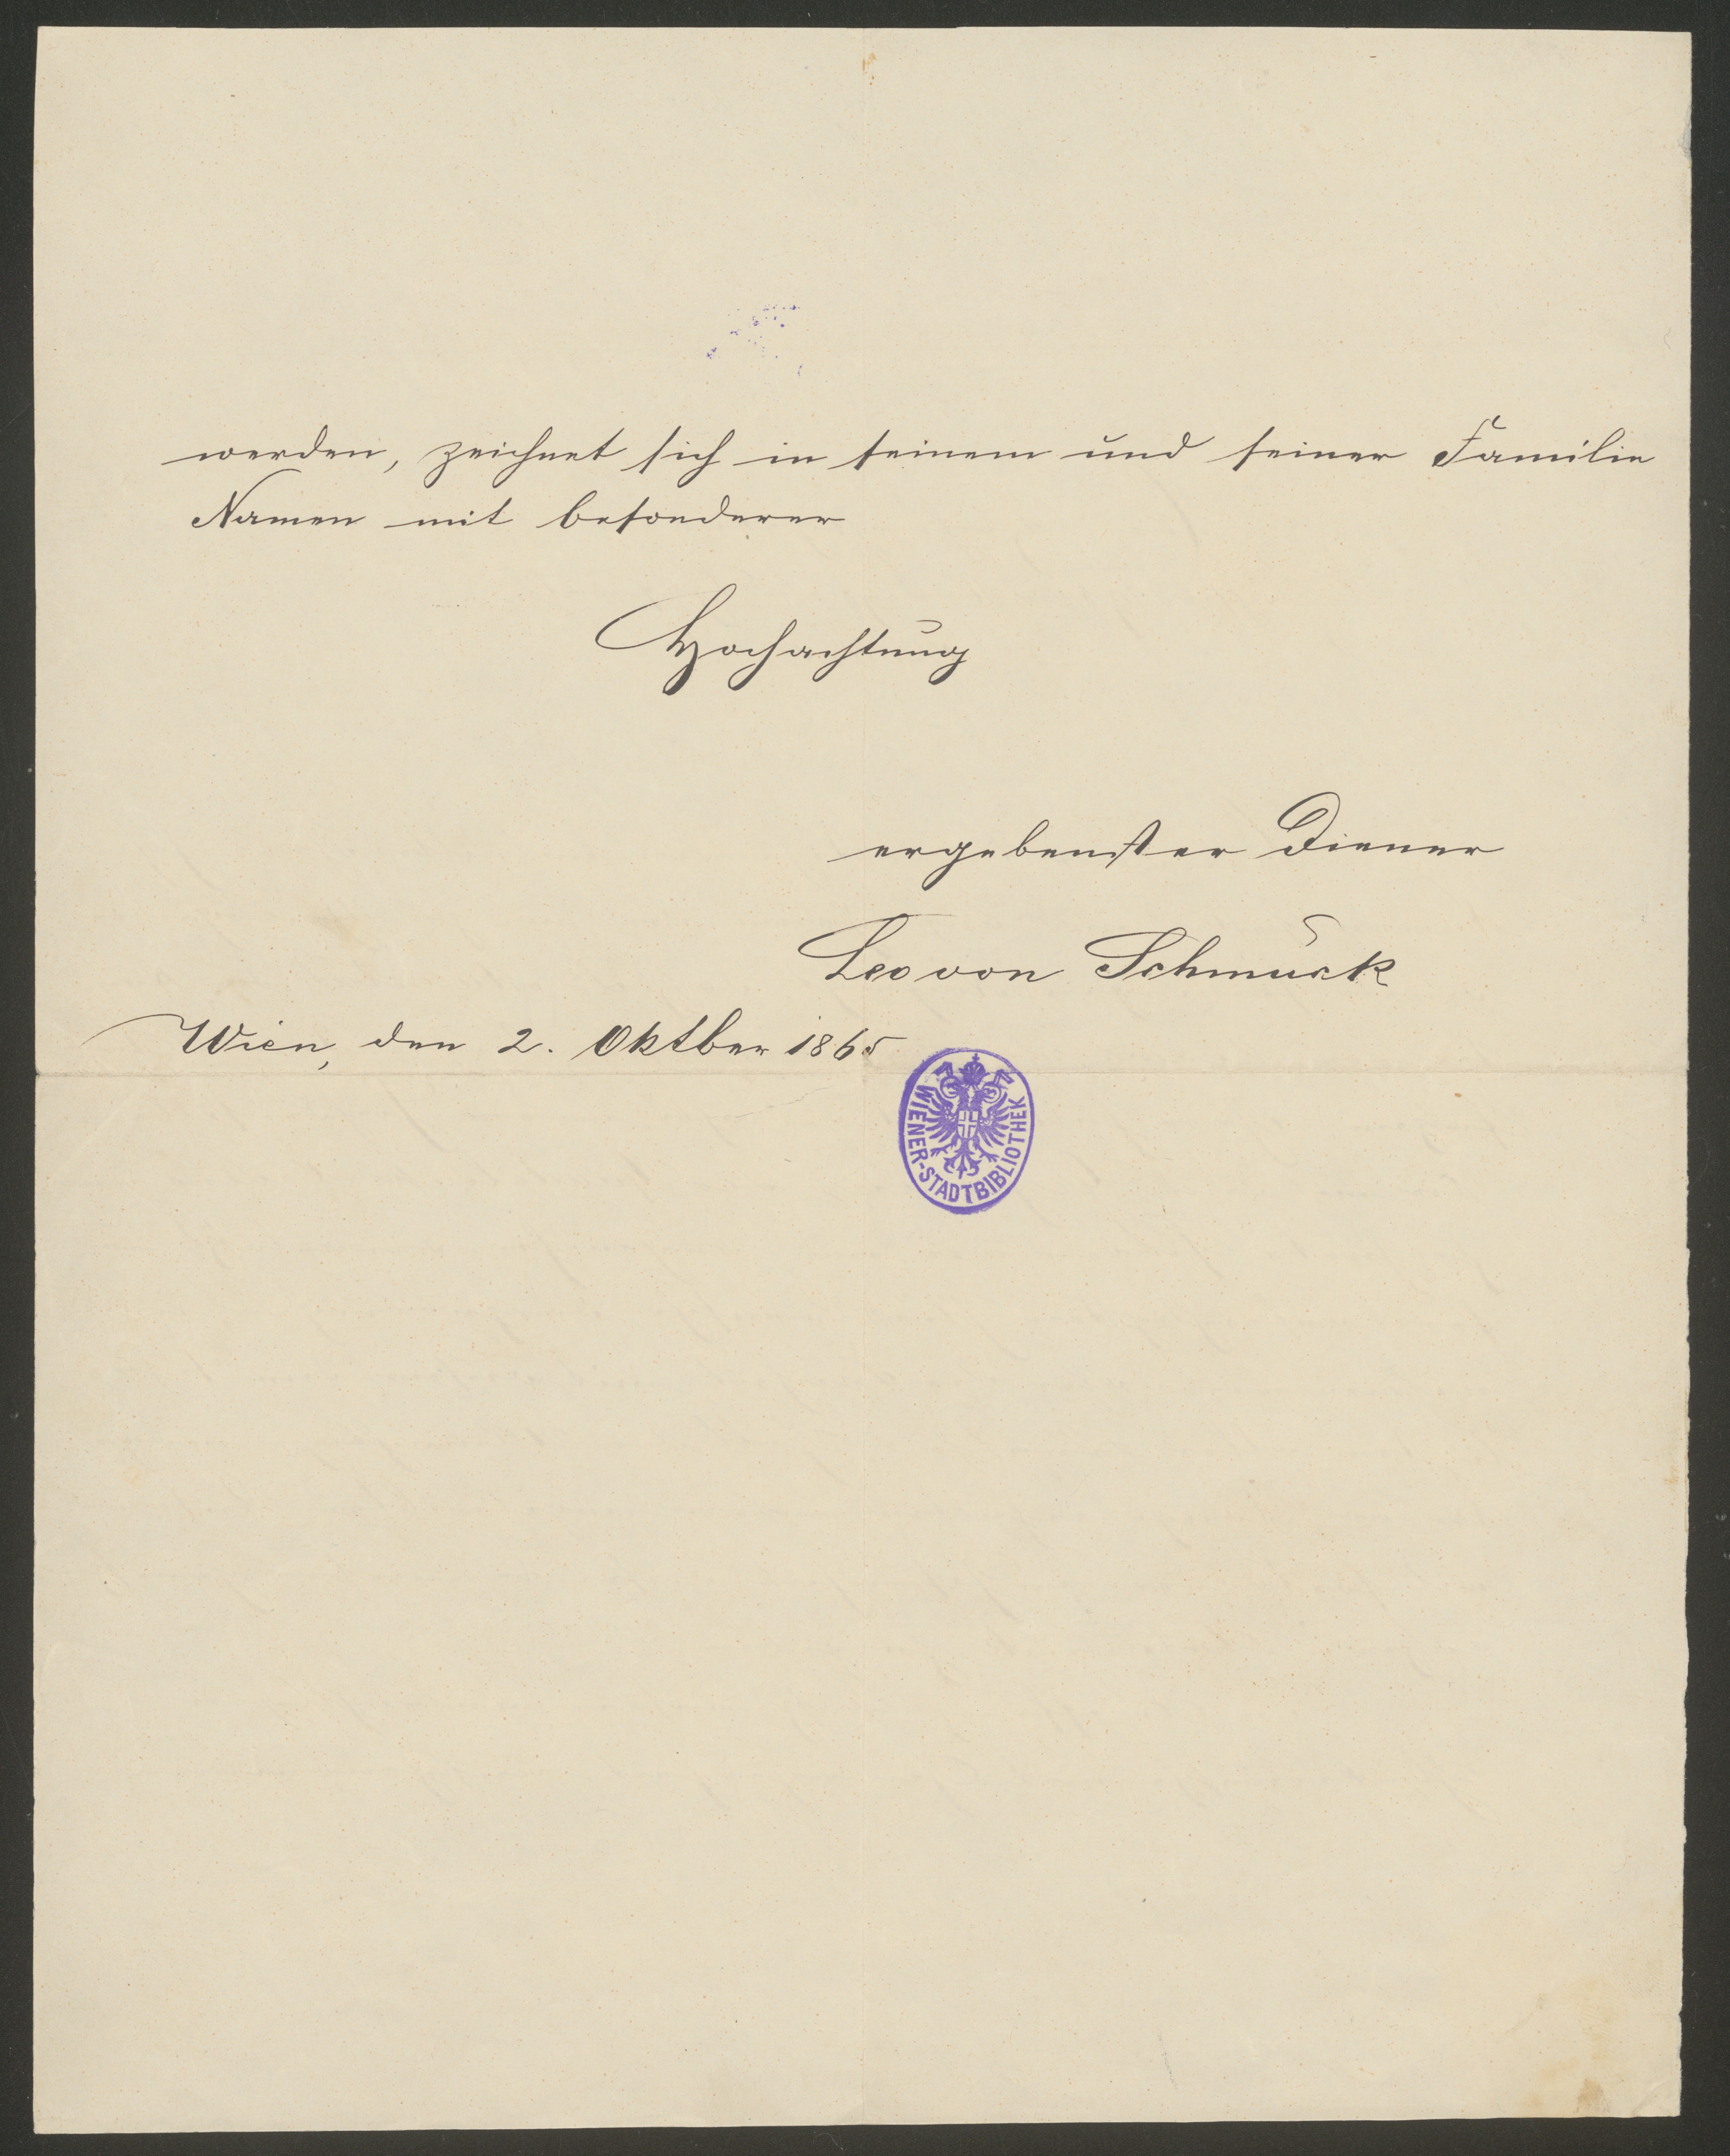 werden, zeichnet sich in seinem und seiner Familie
Namen mit besonderer
Hochachtung
ergebenster Diener
Leo von Schmuck
Wien, den 2. Oktber 1865
WIENER-STADTBIBLIOTHEK